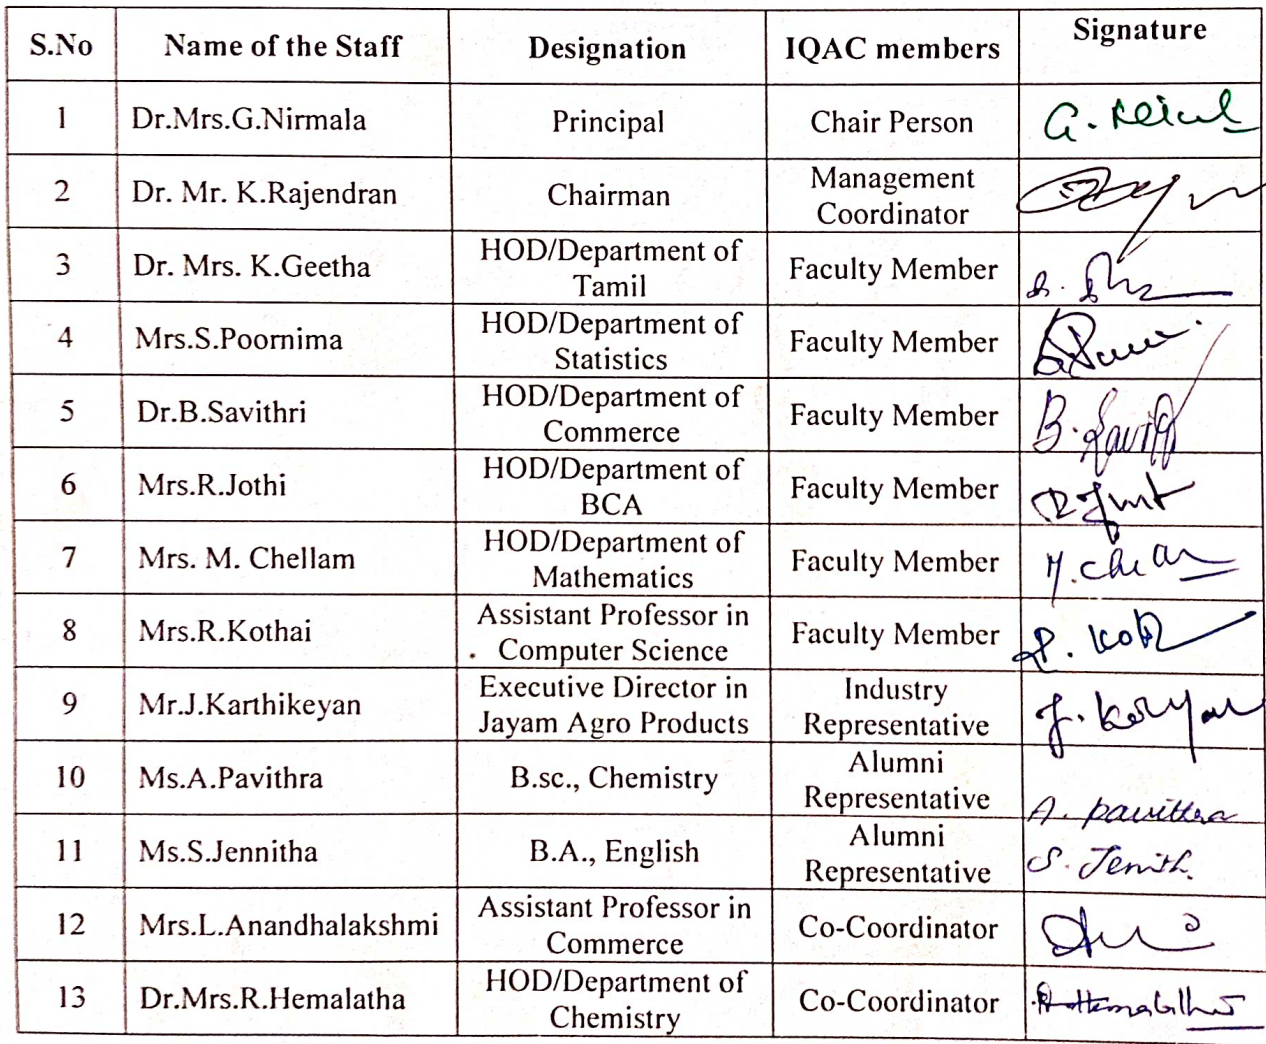 S.No Name of the Staff Designation IQAC members Signature
1 Dr.Mrs.G.Nirmala Principal Chair Person G.
2 Dr. Mr. K.Rajendran Chairman Management
Coordinator
3 Dr. Mrs. K.Geetha HOD/Department of
Tamil Faculty Member
4 Mrs.S.Poornima HOD/Department of
Statistics Faculty Member
5 Dr.B.Savithri HOD/Department of
Commerce Faculty Member B.
6 Mrs.R.Jothi HOD/Department of
BCA Faculty Member
7 Mrs. M. Chellam HOD/Department of
Mathematics Faculty Member
8 Mrs.R.Kothai Assistant Professor in
Computer Science Faculty Member
9 Mr.J.Karthikeyan Executive Director in
Jayam Agro Products Industry
Representative
10 Ms.A.Pavithra B.sc., Chemistry Alumni
Representative A. Pavithra
11 Ms.S.Jennitha B.A., English Alumni
Representative S. Jenith.
12 Mrs.L.Anandhalakshmi Assistant Professor in
Commerce Co-Coordinator
13 Dr.Mrs.R.Hemalatha HOD/Department of
Chemistry Co-Coordinator